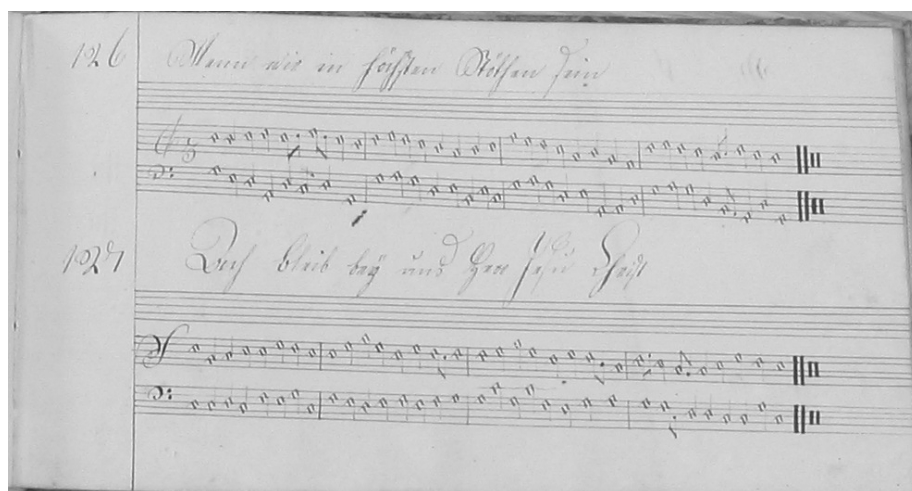 126 Wenn wir in höchsten Nöthen sein
127 Ach bleib beÿ uns Herr Jesu Christ